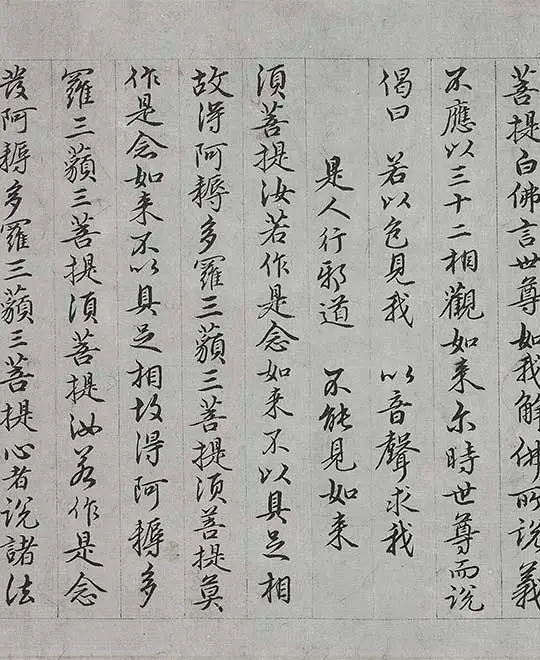 菩提白佛言世尊如我解佛所說義
不應以三十二相觀如来尒時世尊而說
偈曰　若以色見我　以音聲求我
是人行邪道　不能見如来
須菩提汝若作是念如来不以具足相
故得阿耨多羅三藐三菩提須菩提莫
作是念如来不以具足相故得阿耨多
羅三藐三菩提須菩提汝若作是念
發阿耨多羅三藐三菩提心者說諸法